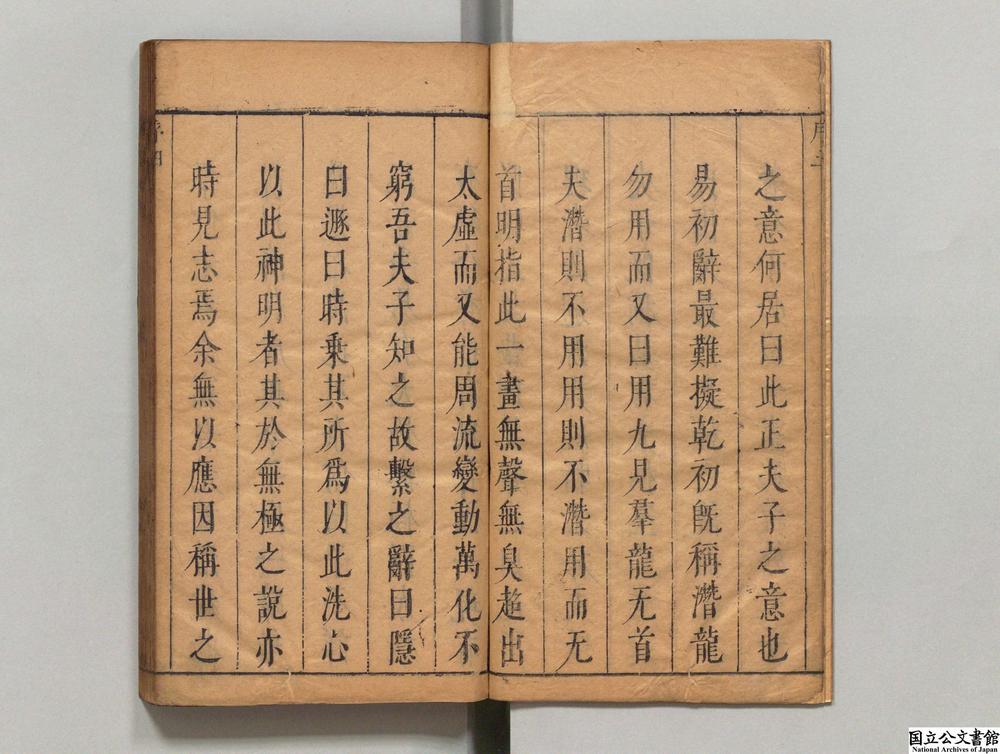 之意何居曰此正夫子之意也
易初辭最難擬乾初旣稱潛龍
勿用而又曰用九見羣龍无首
夫潛則不用用則不潛用而无
首明指此一畫無聲無臭超出
太虛而又能周流變動萬化不
窮吾夫子知之故繫之辭曰隱
曰遯曰時乗其所爲以此洗心
以此神明者其於無極之說亦
時見志焉余無以應因稱世之
国立公文書館
National Archives of Japan